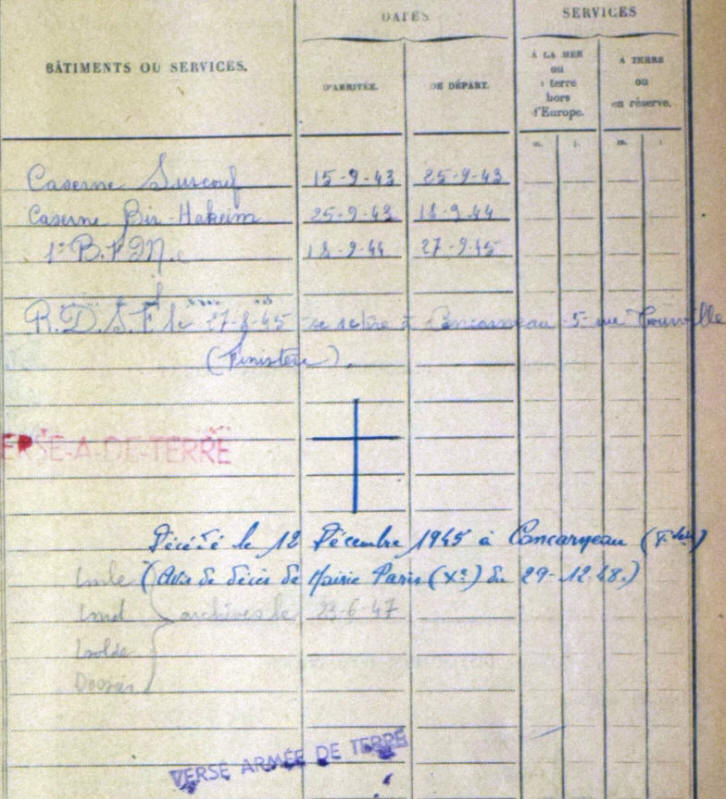 DATES SERVICES
BÂTIMENTS OU SERVICES. D'ARRIVÉE. DE DÉPART. A LA MER ou à terre hors d'Europe. A TERRE ou en réserve.
m. j. m. j.
Caserne Surcouf 15-9-43 25-9-43
Caserne Bir-Hakeim 25-9-43 18-9-44
1er B.F.M. 18-9-44 27-9-45
R.D.S.F. le 27-8-45 se retire à Concarneau 5 rue Tourville
(Finistère).
ERSÉ-A-DE-TERRE
Décédé le 12 Décembre 1945 à Concarneau
(Avis de décès de Mairie Paris (Xe) du 29-12-48.)
archives le 23-6-47
Solde
Dossier
VERSÉ ARMÉE DE TERRE